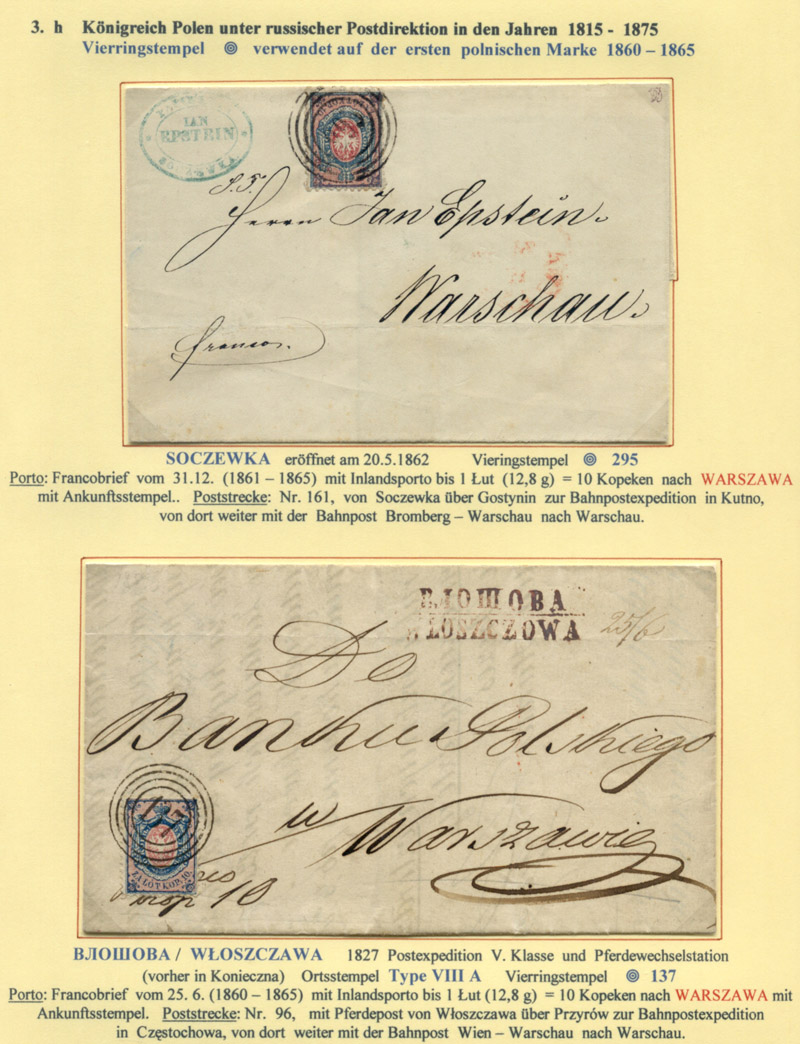 3. h Königreich Polen unter russischer Postdirektion in den Jahren 1815 - 1875
Vierringstempel verwendet auf der ersten polnischen Marke 1860 – 1865
IAN
EPSTEIN
S.T.
Herrn Jan Epstein.
Warschau.
franco.
SOCZEWKA eröffnet am 20.5.1862 Vieringstempel 295
Porto: Francobrief vom 31.12. (1861 – 1865) mit Inlandsporto bis 1 Łut (12,8 g) = 10 Kopeken nach WARSZAWA
mit Ankunftsstempel.. Poststrecke: Nr. 161, von Soczewka über Gostynin zur Bahnpostexpedition in Kutno,
von dort weiter mit der Bahnpost Bromberg – Warschau nach Warschau.
ВЛОШОВА
WŁOSZCZOWA 25/6
Do
Banku Polskiego
w Warszawie
137
ZA ŁÓT KOP. 10.
10
ВЛОШОВА / WŁOSZCZAWA 1827 Postexpedition V. Klasse und Pferdewechselstation
(vorher in Konieczna) Ortsstempel Type VIII A Vierringstempel 137
Porto: Francobrief vom 25. 6. (1860 – 1865) mit Inlandsporto bis 1 Łut (12,8 g) = 10 Kopeken nach WARSZAWA mit
Ankunftsstempel. Poststrecke: Nr. 96, mit Pferdepost von Włoszczawa über Przyrów zur Bahnpostexpedition
in Częstochowa, von dort weiter mit der Bahnpost Wien – Warschau nach Warschau.